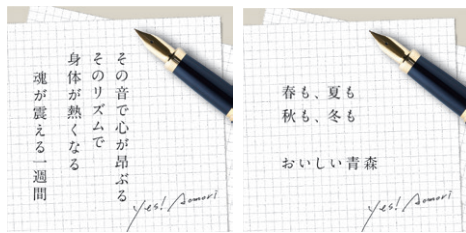 その音で心が昂ぶる
そのリズムで
身体が熱くなる
魂が震える一週間
yes! Aomori
春も、夏も
秋も、冬も
おいしい青森
yes! Aomori